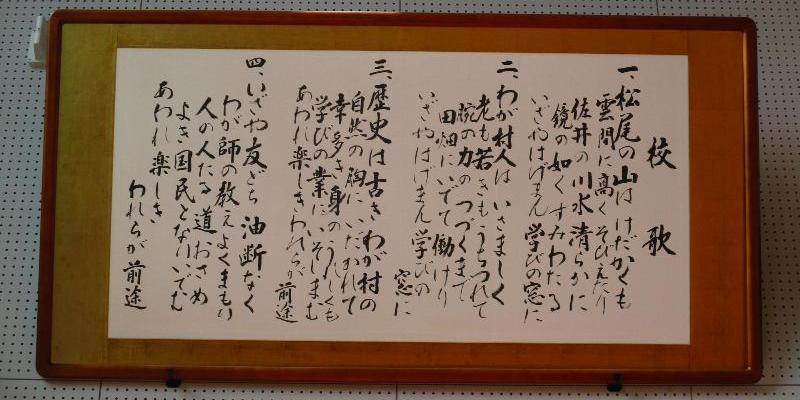 校歌
一、松尾の山はけだかくも
雲間に高くそびえたり
佐井の川水清らかに
鏡の如くすみわたる
いざやはげまん学びの窓に
二、わが村人はいさましく
老も若きもうちつれて
腕の力のつづくまで
田畑にいでて働けり
いざやはげまん学びの
窓に
三、歴史は古きわが村の
自然の胸にいだかれて
幸多き身のうれしくも
学びの業にいそしまむ
あわれ楽しきわれらが前途
四、いざや友どち油断なく
わが師の教えよくまもり
人の人たる道おさめ
よき国民となりいでむ
あわれ楽しき
われらが前途